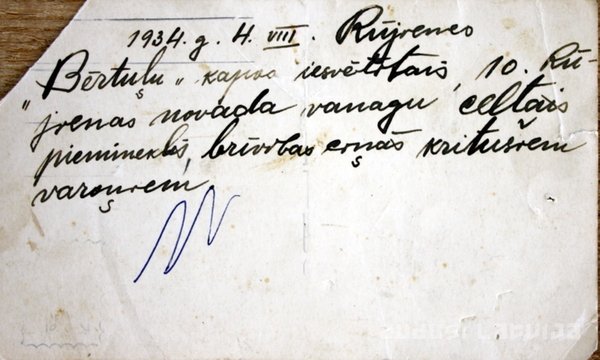 1934. g. 4. VIII. Rūjienes
„Bērtuļu„ kapos iesvētītais, 10. Rū-
jienas novada vanagu celtais
piemineklis, brīvības cīņās kritušiem
varoņiem
zudusi latvija